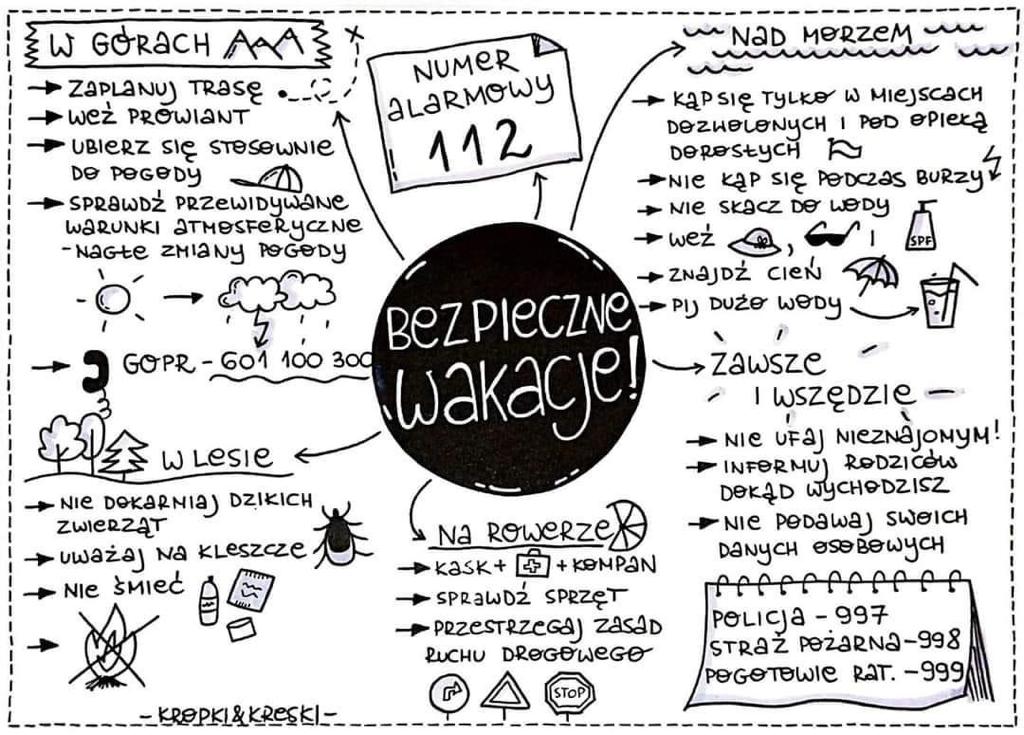 W GÓRACH
→ ZAPLANUJ TRASĘ
→ WEŹ PROWIANT
→ UBIERZ SIĘ STOSOWNIE
DO POGODY
→ SPRAWDŹ PRZEWIDYWANE
WARUNKI ATMOSFERYCZNE
- NAGŁE ZMIANY POGODY
→ GOPR - 601 100 300
NUMER
ALARMOWY
112
NAD MORZEM
→ KĄP SIĘ TYLKO W MIEJSCACH
DOZWOLONYCH I POD OPIEKĄ
DOROSŁYCH
→ NIE KĄP SIĘ PODCZAS BURZY
→ NIE SKACZ DO WODY
→ WEŹ , I
SPF
→ ZNAJDŹ CIEŃ
→ PIJ DUŻO WODY
BEZPIECZNE
WAKACJE!
ZAWSZE
I WSZĘDZIE
→ NIE UFAJ NIEZNAJOMYM!
→ INFORMUJ RODZICÓW
DOKĄD WYCHODZISZ
→ NIE PODAWAJ SWOICH
DANYCH OSOBOWYCH
W LESIE
→ NIE DOKARMIAJ DZIKICH
ZWIERZĄT
→ UWAŻAJ NA KLESZCZE
→ NIE ŚMIEĆ
NA ROWERZE
→ KASK + + KOMPAN
→ SPRAWDŹ SPRZĘT
→ PRZESTRZEGAJ ZASAD
RUCHU DROGOWEGO
STOP
POLICJA - 997
STRAŻ POŻARNA - 998
POGOTOWIE RAT. - 999
- KROPKI&KRESKI -